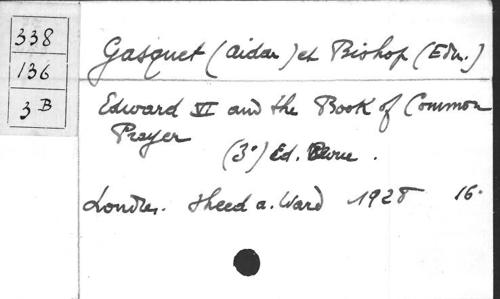 338
136
3 B
Gasquet (Aidan) et Bishop (Edm.)
Edward VI and the Book of Common
Prayer
(3°) Ed. Revue.
Londres. Sheed a. Ward 1928 16°